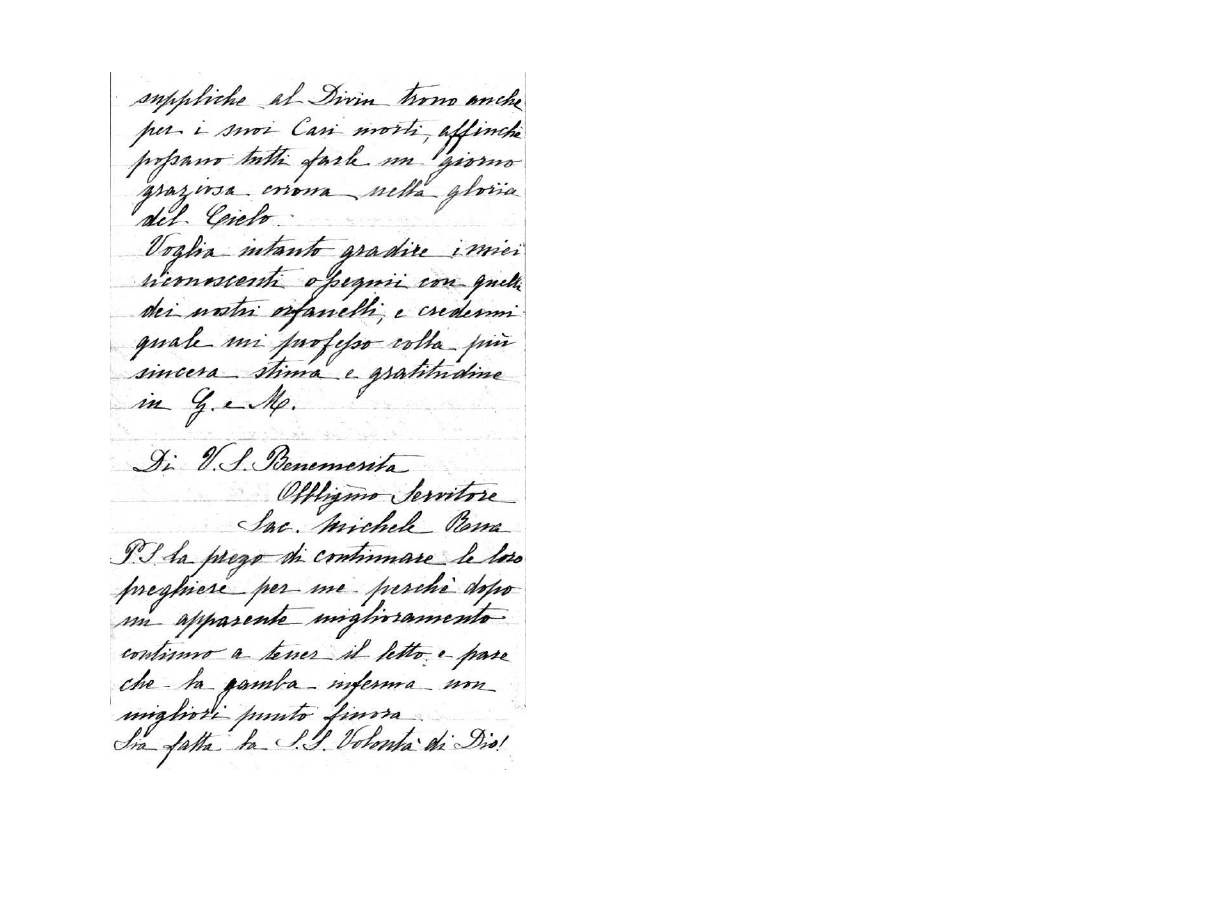 suppliche al Divin trono anche
per i suoi Cari morti, affinchè
possano tutti farle un giorno
graziosa corona nella gloria
del Cielo.
Voglia intanto gradire i miei
riconoscenti ossequii con quelli
dei nostri orfanelli, e credermi
quale mi professo colla più
sincera stima e gratitudine
in G. e M.
Di V. S. Benemerita
Obbligmo Servitore
Sac. Michele Rua
P.S la prego di continuare le loro
preghiere per me perchè dopo
un apparente miglioramento
continuo a tener il letto e pare
che la gamba inferma non
migliori punto finora
Sia fatta la S.S. Volontà di Dio!